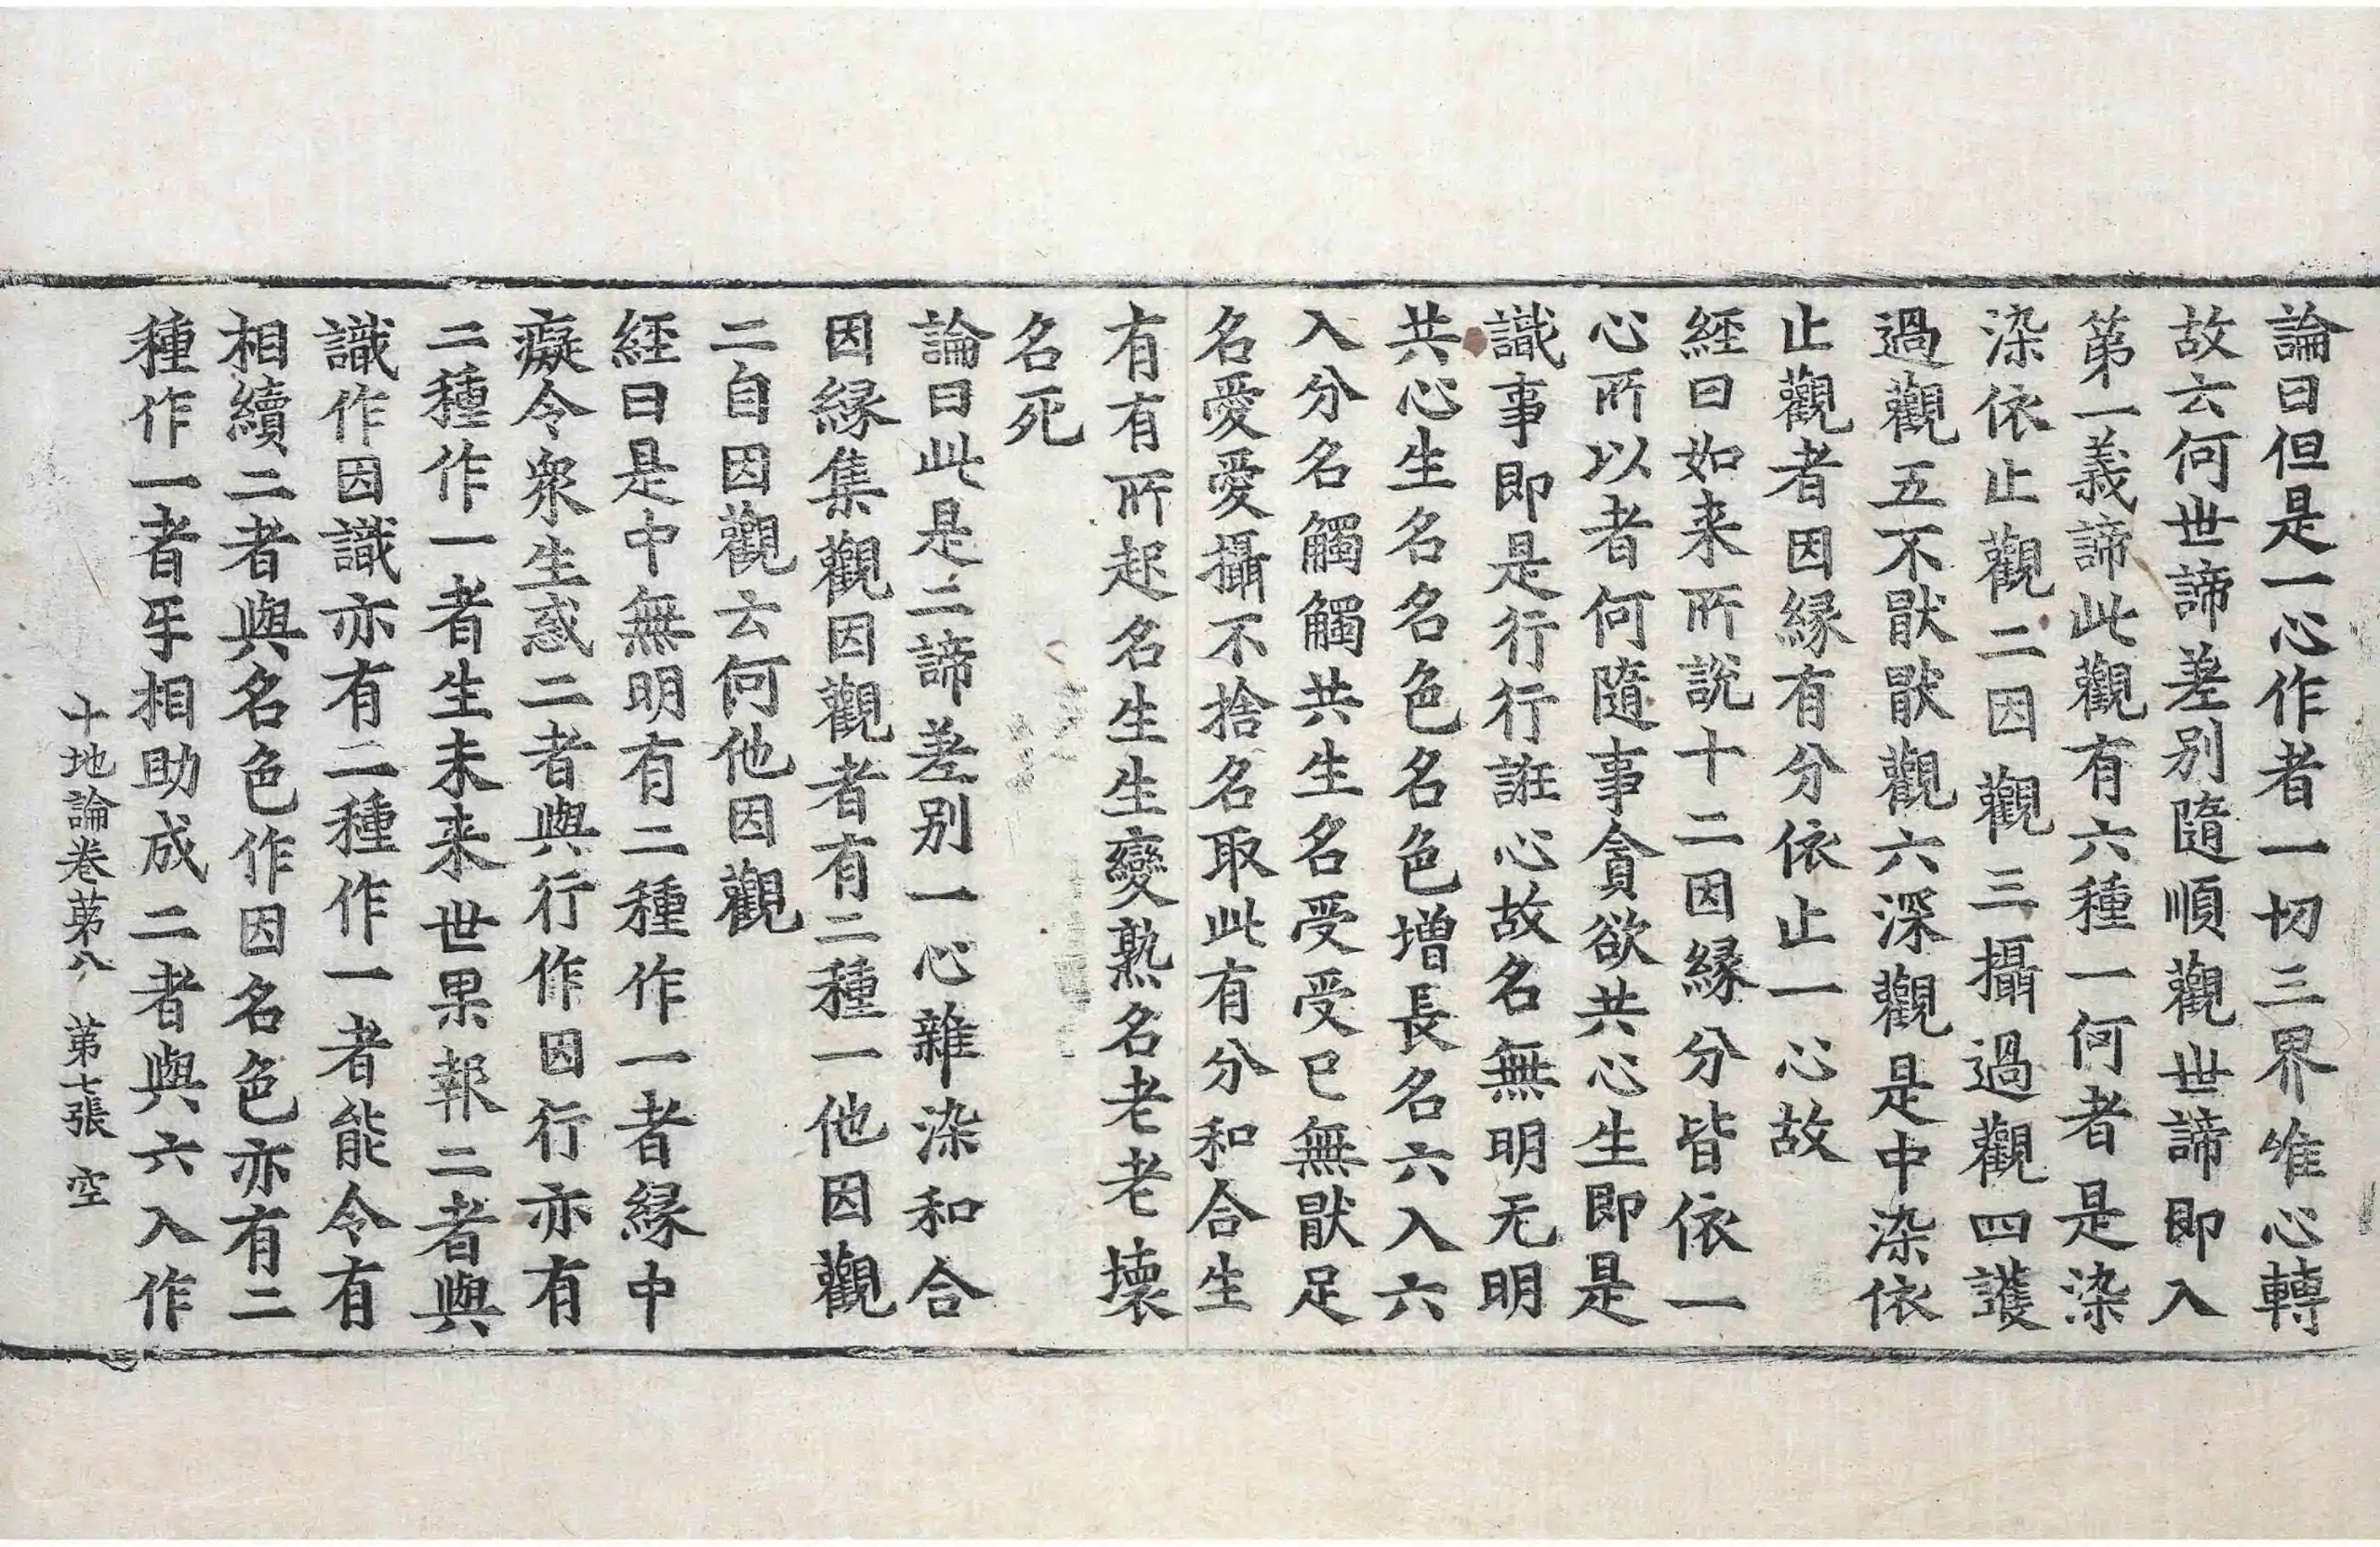 論曰但是一心作者一切三界唯心轉
故云何世諦差別隨順觀世諦即入
第一義諦此觀有六種一何者是染
染依止觀二因觀三攝過觀四護
過觀五不猒猒觀六深觀是中染依
止觀者因縁有分依止一心故
經曰如来所說十二因縁分皆依一
心所以者何隨事貪欲共心生即是
識事即是行行誑心故名無明无明
共心生名名色名色增長名六入六
入分名觸觸共生名受受已無猒足
名愛愛攝不捨名取此有分和合生
有有所起名生生變熟名老老壞
名死
論曰此是二諦差別一心雜染和合
因縁集觀因觀者有二種一他因觀
二自因觀云何他因觀
經曰是中無明有二種作一者縁中
癡令衆生惑二者與行作因行亦有
二種作一者生未来世果報二者與
識作因識亦有二種作一者能令有
相續二者與名色作因名色亦有二
種作一者㸦相助成二者與六入作
十地論卷第八 第七張 空